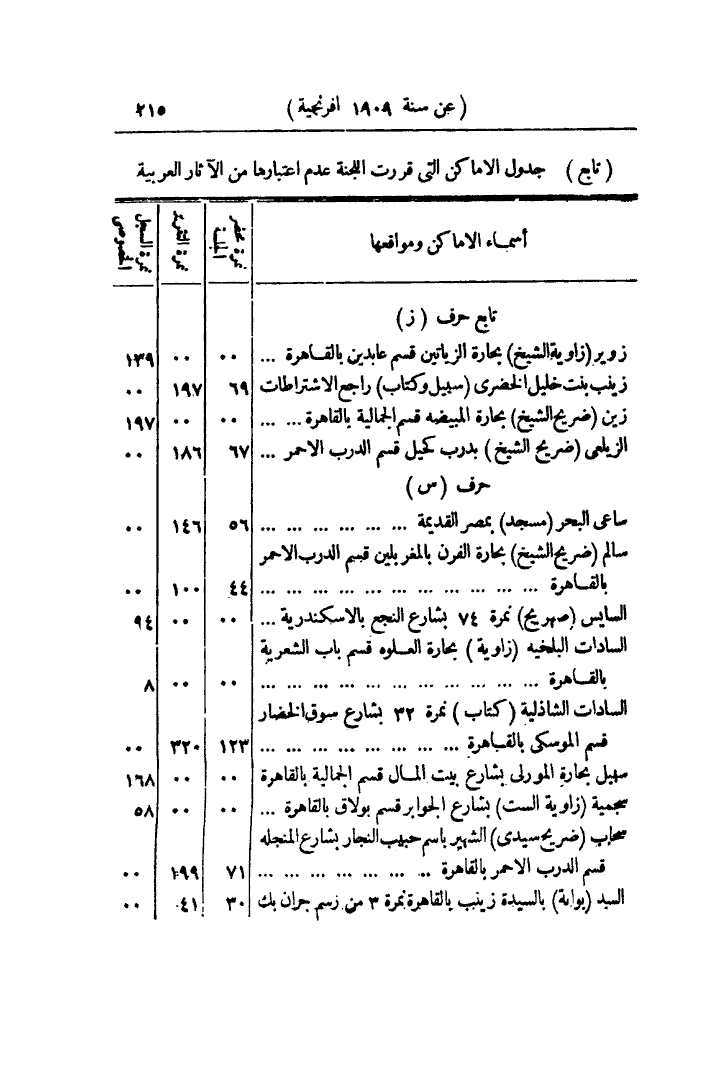 (عن سنة ١٩٠٩ افرنجية) ٢١٥
(تابع) جدول الاماكن التى قررت اللجنة عدم اعتبارها من الآثار العربية
أسماء الاماكن ومواقعها نمرة محضر الجلسة نمرة التقرير نمرة السجل الخصوصى
تابع حرف (ز)
زوير (زاوية الشيخ) بحارة الزياتين قسم عابدين بالقاهرة ... ٠٠ ٠٠ ١٣٩
زينب بنت خليل الخضرى (سبيل وكتاب) راجع الاشتراطات ٦٩ ١٩٧ ٠٠
زين (ضريح الشيخ) بحارة المبيضه قسم الجمالية بالقاهرة ... ... ٠٠ ٠٠ ١٩٧
الزيلعى (ضريح الشيخ) بدرب كحيل قسم الدرب الاحمر ... ٦٧ ١٨٦ ٠٠
حرف (س)
ساعى البحر (مسجد) بمصر القديمة ... ... ... ... ... ... ٥٦ ١٤٦ ٠٠
سالم (ضريح الشيخ) بحارة الفرن بالمغربلين قسم الدرب الاحمر
بالقاهرة ... ... ... ... ... ... ... ... ... ... ... ٤٤ ١٠٠ ٠٠
السايس (صهريج) نمرة ٧٤ بشارع النجع بالاسكندرية ... ٠٠ ٠٠ ٩٤
السادات البلخيه (زاوية) بحارة العلوه قسم باب الشعرية
بالقاهرة ... ... ... ... ... ... ... ... ... ... ... ٠٠ ٠٠ ٨
السادات الشاذلية (كتاب) نمرة ٣٢ بشارع سوق الخضار
قسم الموسكى بالقاهرة ... ... ... ... ... ... ... ... ١٢٣ ٣٢٠ ٠٠
سهيل بحارة المورلى بشارع بيت المال قسم الجمالية بالقاهرة ٠٠ ٠٠ ١٦٨
سجمية (زاوية الست) بشارع الجوابر قسم بولاق بالقاهرة ... ٠٠ ٠٠ ٥٨
سحاب (ضريح سيدى) الشهير باسم حبيب النجار بشارع المنجله
قسم الدرب الاحمر بالقاهرة .. ... ... ... ... ... ... ٧١ ١٩٩ ٠٠
السيد (بوابة) بالسيدة زينب بالقاهرة نمرة ٣ من رسم جران بك ٣٠ ٤١ ٠٠